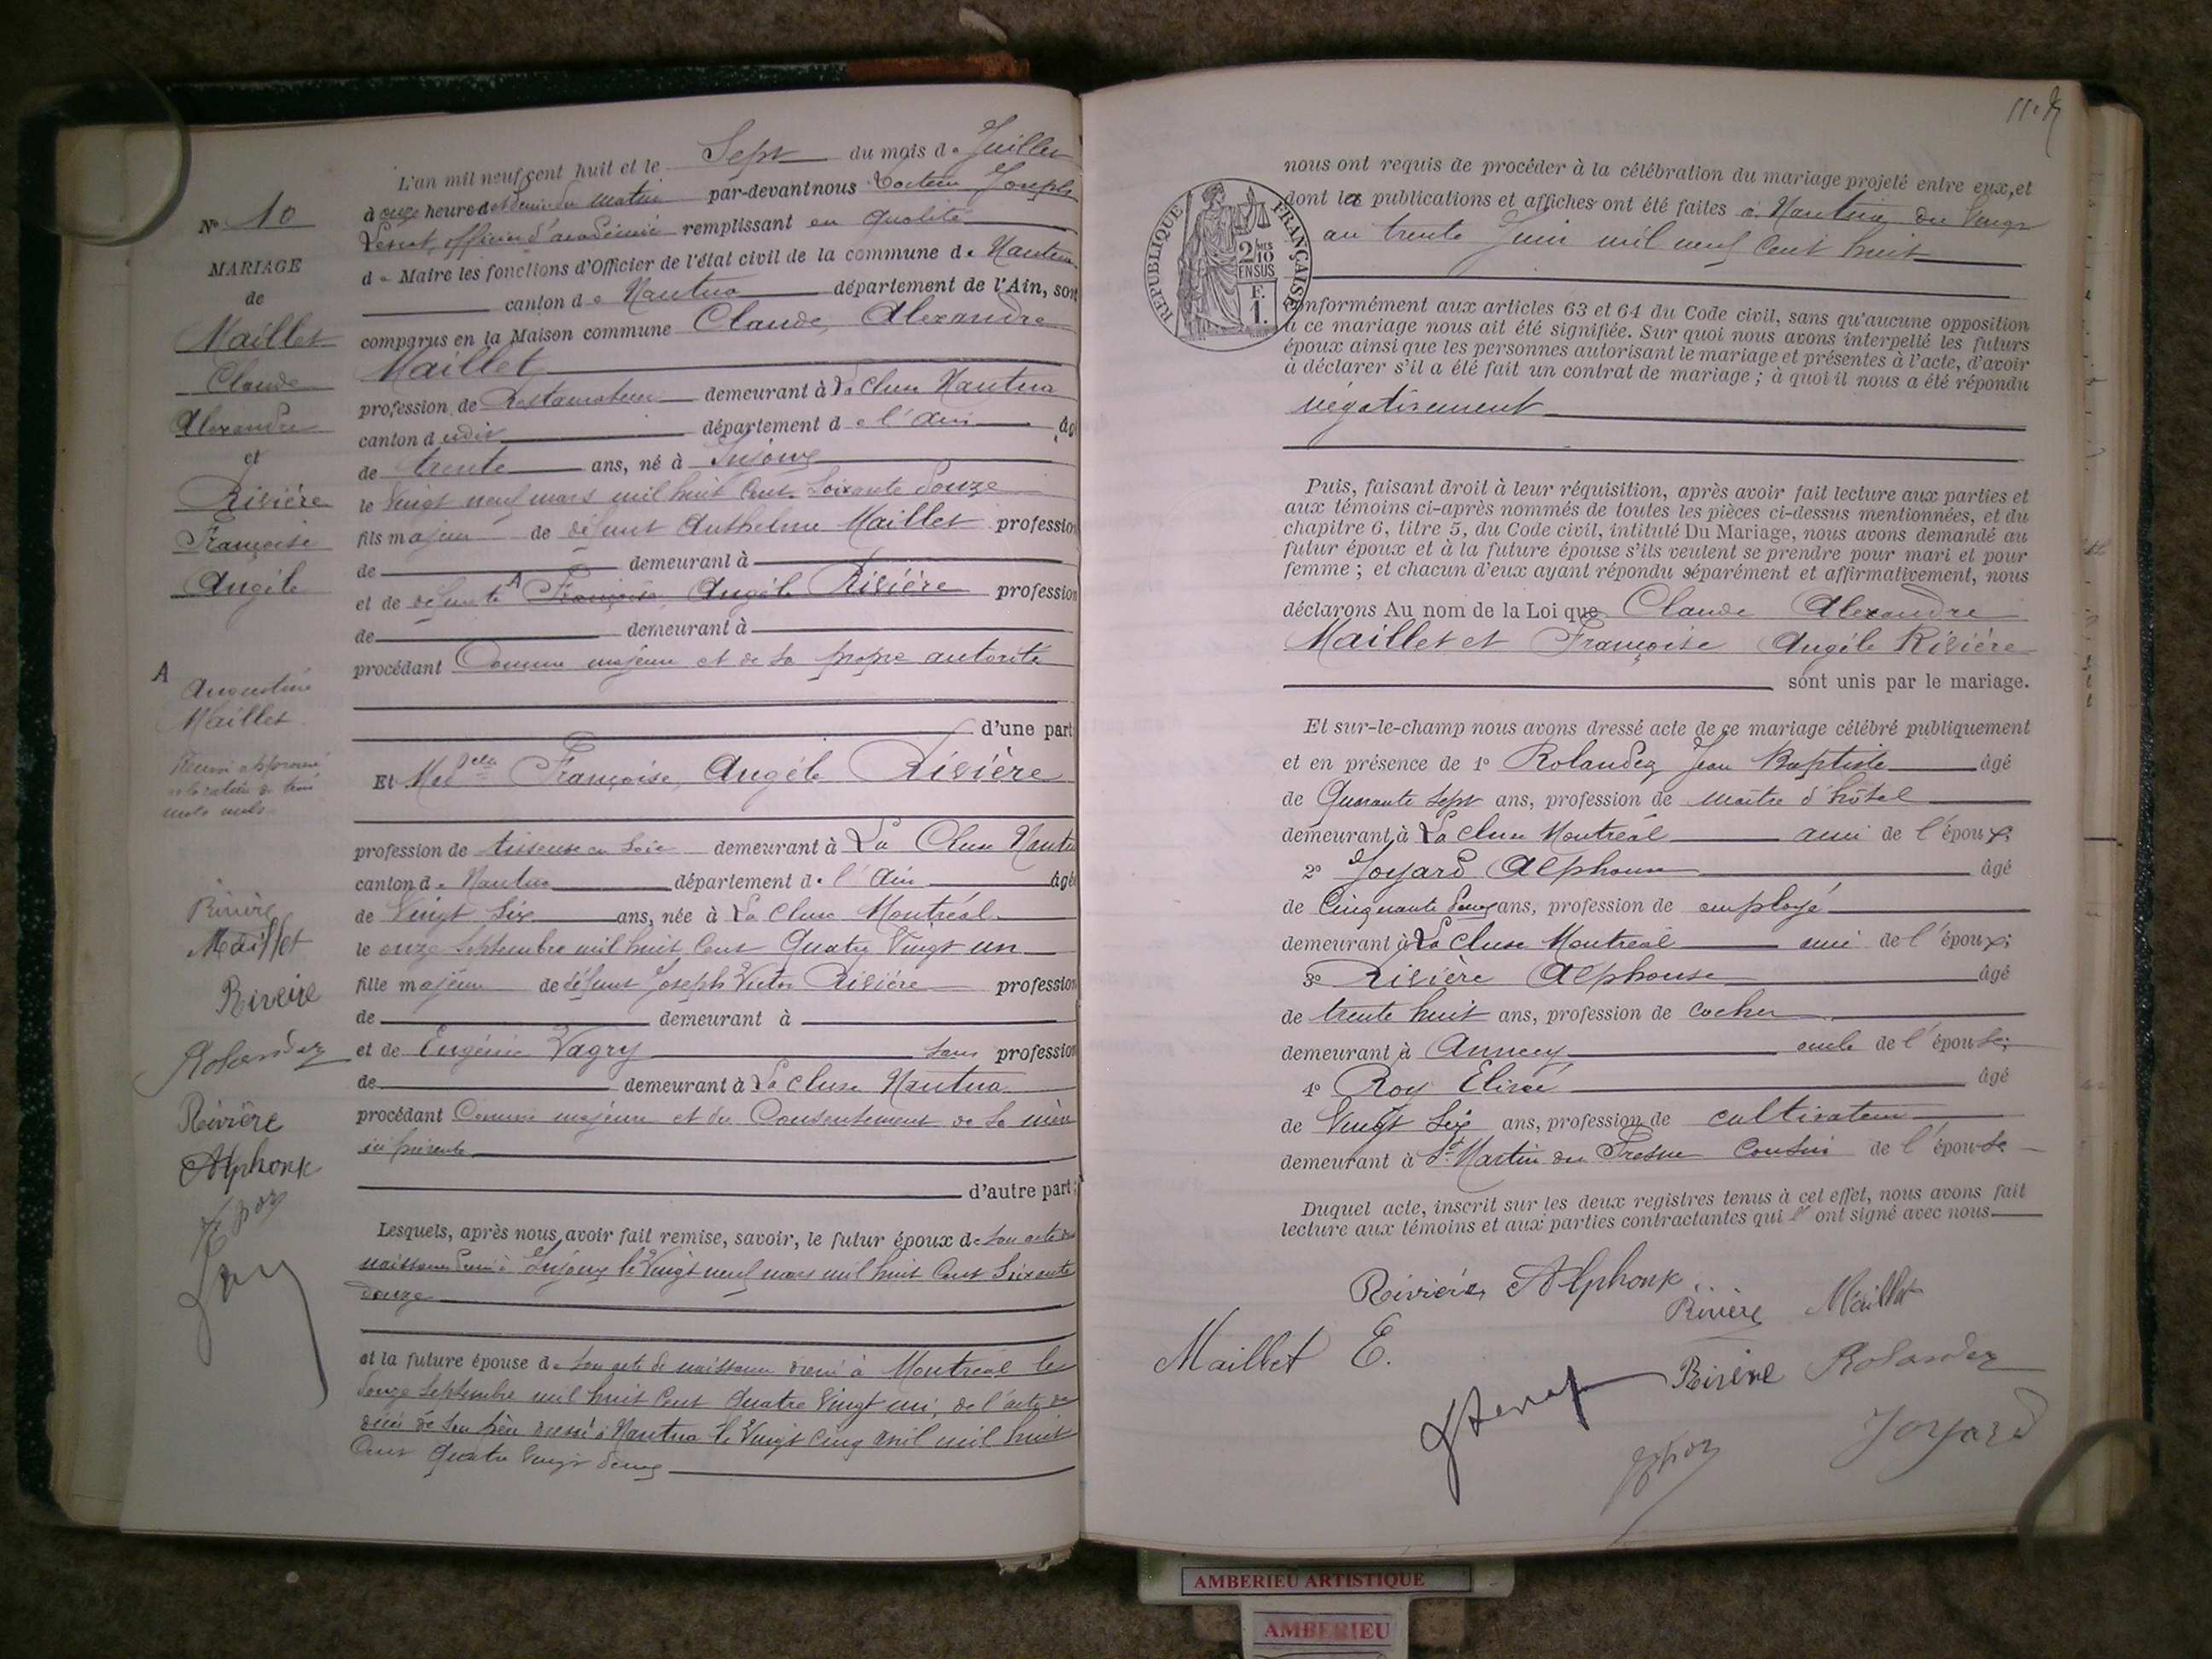 Nº 10
MARIAGE
de
Maillet
Claude
Alexandre
et
Rivière
Françoise
Angèle
A
Augustine
Maillet
mots nuls
Rivière
Maillet
Riviere
Rolandez
Rivière
Alphonse
L'an mil neuf cent huit et le Sept du mois de Juillet
à onze heures et demie du matin par-devant nous Docteur Joseph
officier d'académie remplissant en qualité
de Maire les fonctions d'Officier de l'état civil de la commune de Nantua
canton de Nantua département de l'Ain, sont
comparus en la Maison commune Claude, Alexandre
Maillet
profession de Restaurateur demeurant à La Cluse Nantua
canton dudit département de l'Ain âgé
de trente ans, né à Injoux
le vingt neuf mars mil huit cent soixante douze
fils majeur de défunt Anthelme Maillet profession
de demeurant à
et de défunte A Françoise, Angèle Rivière profession
de demeurant à
procédant Comme majeur et de sa propre autorité
d'une part
Et Medelle Françoise, Angèle Rivière
profession de tisseuse en soie demeurant à La Cluse Nantua
canton de Nantua département de l'Ain âgée
de Vingt six ans, née à La Cluse Montréal
le onze septembre mil huit cent Quatre Vingt un
fille majeure de défunt Joseph Victor Rivière profession
de demeurant à
et de Eugénie Vagry sans profession
de demeurant à La Cluse Nantua
procédant Comme majeure et du Consentement de sa mère
ici présente
d'autre part;
Lesquels, après nous avoir fait remise, savoir, le futur époux de son acte de
naissance dressé à Injoux le Vingt neuf mars mil huit cent soixante
douze
et la future épouse de son acte de naissance dressé à Montréal le
douze Septembre mil huit cent quatre vingt un, de l'acte de
décès de son père dressé à Nantua le Vingt cinq avril mil huit
cent quatre vingt douze
nous ont requis de procéder à la célébration du mariage projeté entre eux, et
dont les publications et affiches ont été faites à Nantua du Vingt
au trente Juin mil neuf cent huit
RÉPUBLIQUE FRANÇAISE
2/10
EN SUS
F.
1.
conformément aux articles 63 et 64 du Code civil, sans qu'aucune opposition
à ce mariage nous ait été signifiée. Sur quoi nous avons interpellé les futurs
époux ainsi que les personnes autorisant le mariage et présentes à l'acte, d'avoir
à déclarer s'il a été fait un contrat de mariage ; à quoi il nous a été répondu
négativement
Puis, faisant droit à leur réquisition, après avoir fait lecture aux parties et
aux témoins ci-après nommés de toutes les pièces ci-dessus mentionnées, et du
chapitre 6, titre 5, du Code civil, intitulé Du Mariage, nous avons demandé au
futur époux et à la future épouse s'ils veulent se prendre pour mari et pour
femme ; et chacun d'eux ayant répondu séparément et affirmativement, nous
déclarons Au nom de la Loi que Claude Alexandre
Maillet et Françoise Angèle Rivière
sont unis par le mariage.
Et sur-le-champ nous avons dressé acte de ce mariage célébré publiquement
et en présence de 1º Rolandez Jean Baptiste âgé
de Quarante sept ans, profession de maître d'hôtel
demeurant à La Cluse Montréal ami de l'époux;
2º Joyard Alphonse âgé
de Cinquante deux ans, profession de employé
demeurant à La Cluse Montréal ami de l'époux;
3º Rivière Alphonse âgé
de trente huit ans, profession de cocher
demeurant à Annecy oncle de l'épouse;
4º Roy Elisée âgé
de Vingt six ans, profession de cultivateur
demeurant à St Martin du Fresne cousin de l'épouse
Duquel acte, inscrit sur les deux registres tenus à cet effet, nous avons fait
lecture aux témoins et aux parties contractantes qui l'ont signé avec nous
Rivière Alphonse
Rivière Maillet
Maillet E.
Riviere Rolandez
Joyard
AMBERIEU ARTISTIQUE
AMBERIEU